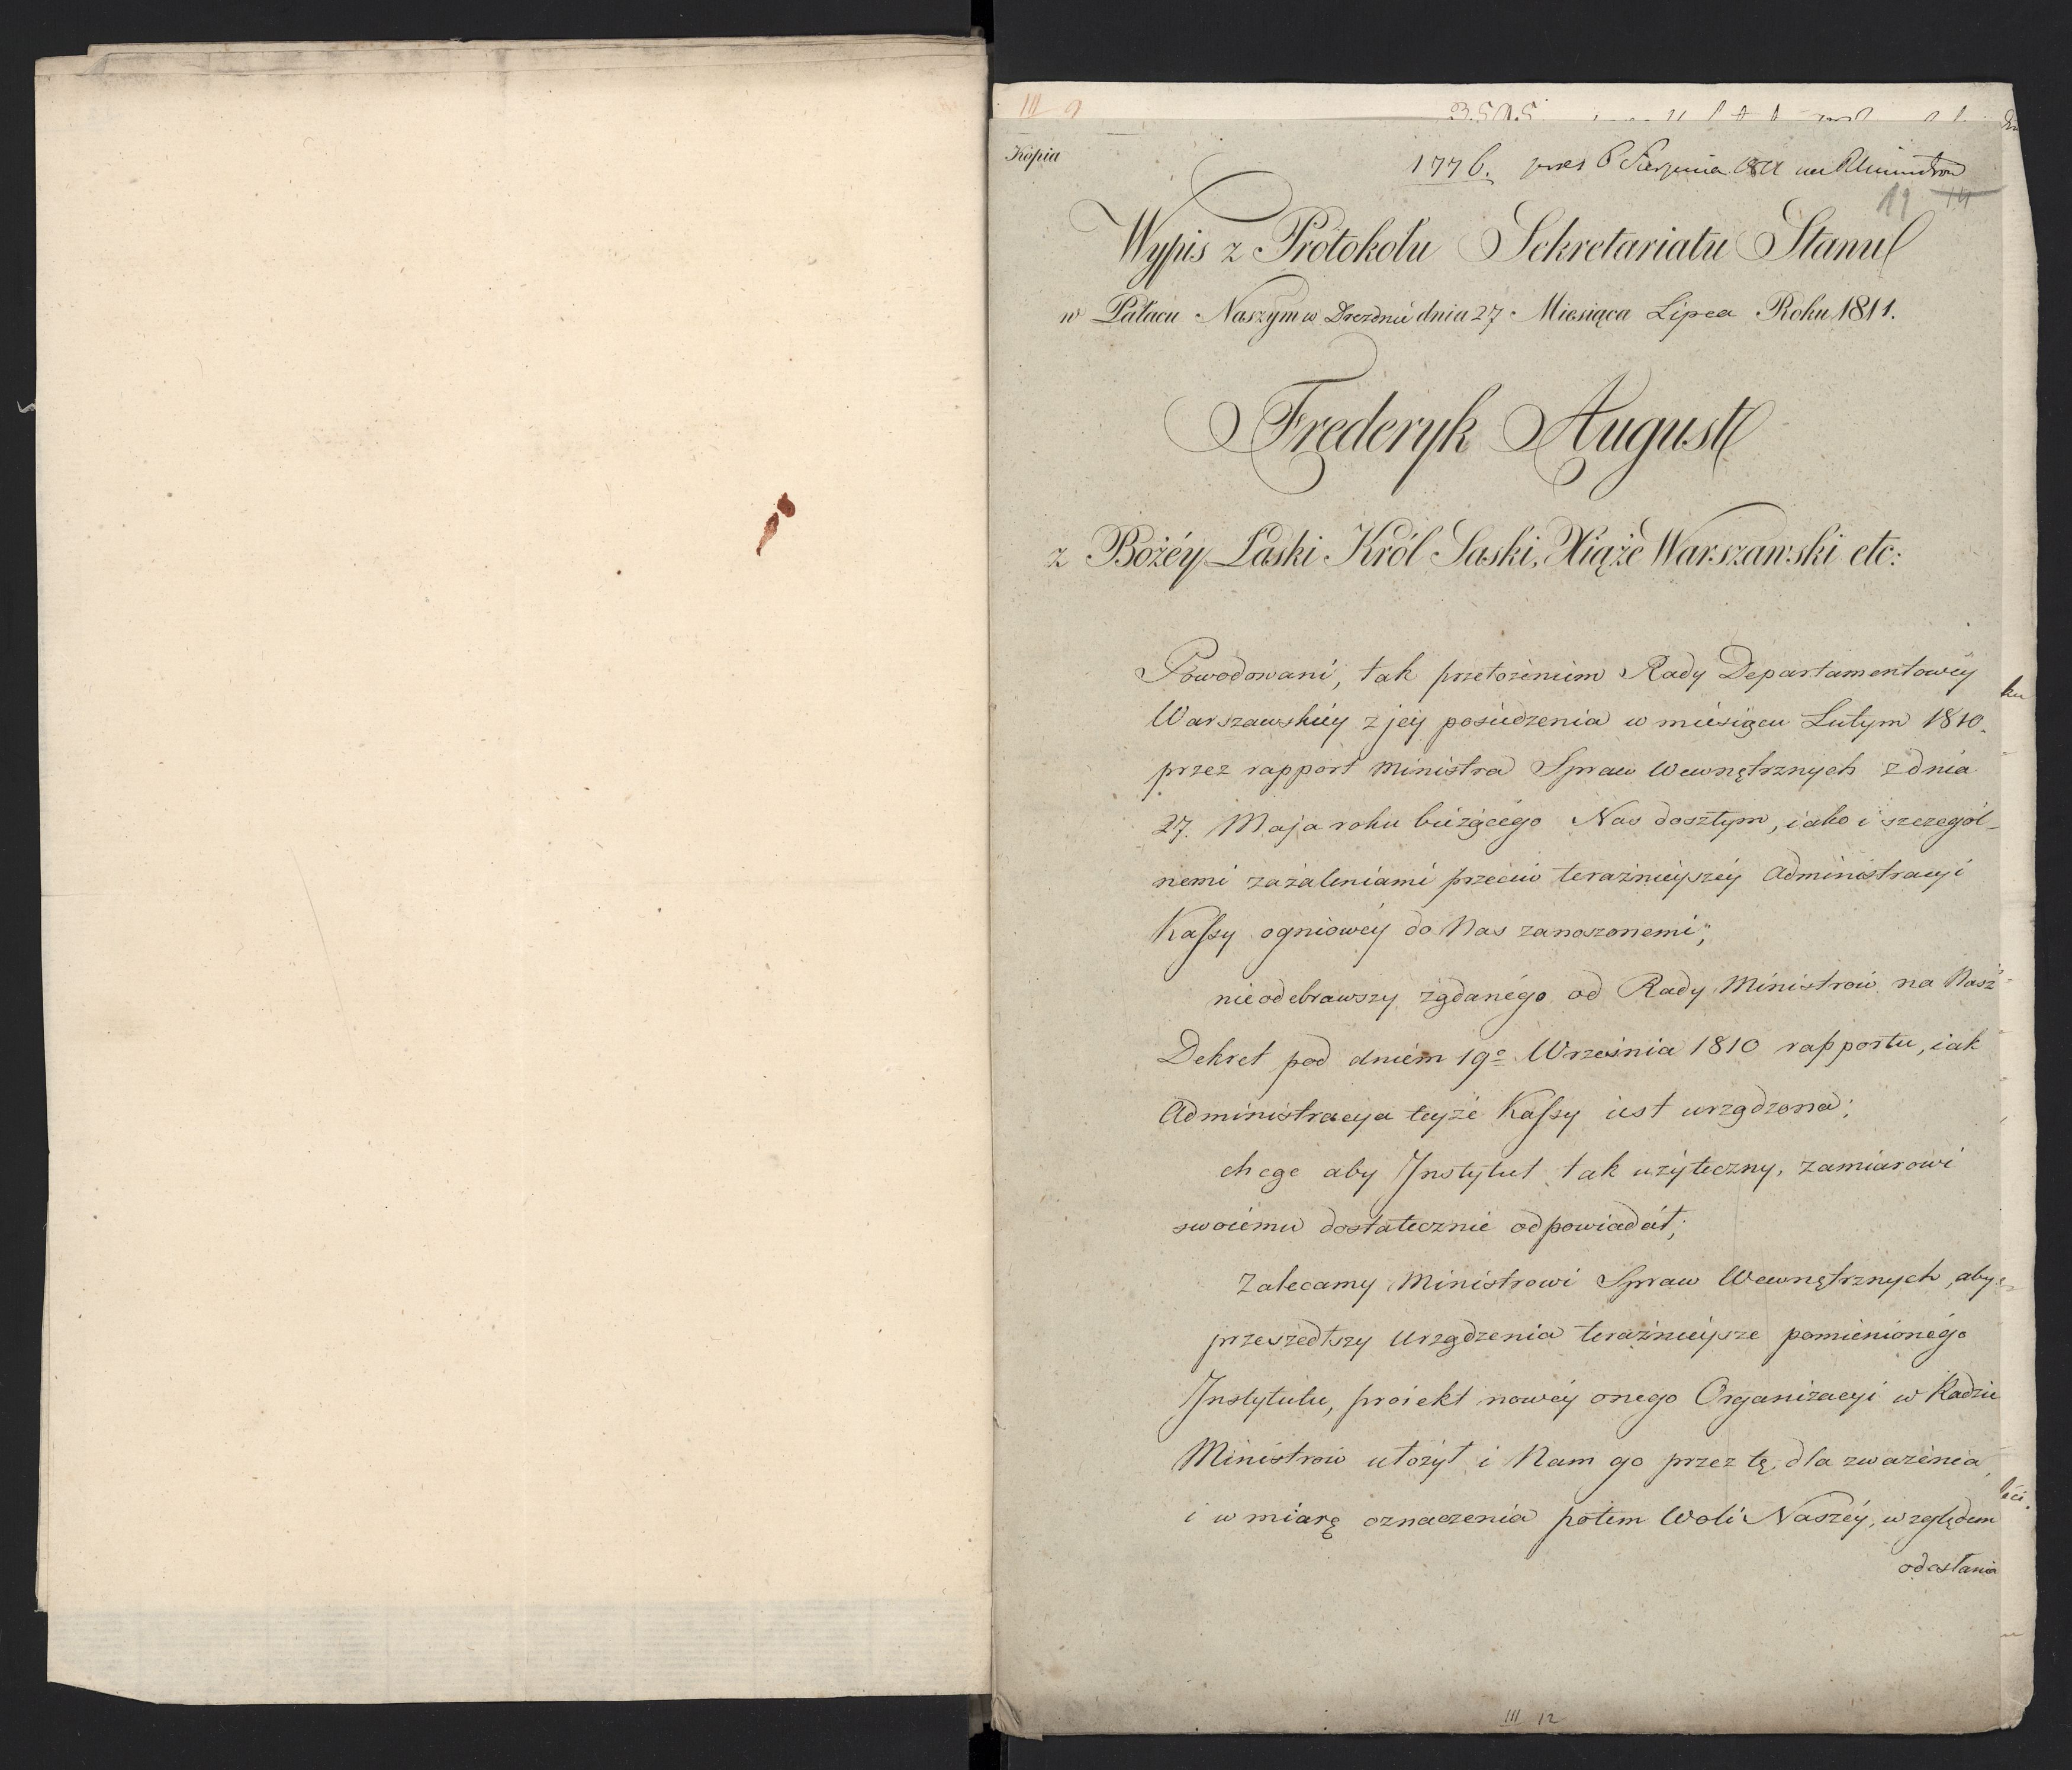 III 9
3505
Kopia
1776. praes 6 Sierpnia 1811
19 14
Wypis z Protokołu Sekretariatu Stanu
w Pałacu Naszym w Dreznie dnia 27 Miesiąca Lipca Roku 1811.
Frederyk August
z Bożéy Łaski Król Saski, Xiąże Warszawski etc:
Powodowani, tak przełożeniem Rady Departamentowéy
Warszawskiéy z jéy posiedzenia w miesiącu Lutym 1810.
przez rapport Ministra Spraw Wewnętrznych z dnia
27. Maja roku bieżącégo Nas doszłym, iako i szczegól-
nemi zażaleniami przeciw teraźnieyszéy Administracyi
Kaſsy ogniowéy do Nas zanoszonemi;
nieodebrawszy żądanégo od Rady Ministrów na Nasz
Dekret pod dniem 19o Września 1810 rapportu, iak
Administracya teyże Kaſsy iest urządzona;
chcąc aby Instytut tak użyteczny, zamiarowi
swoiému dostatecznie odpowiadał;
Zalecamy Ministrowi Spraw Wewnętrznych, aby
przeszedłszy Urządzenia teraźnieysze pomienionégo
Instytutu, proiekt nowéy onego Organizacyi w Radzie
Ministrów ułożył i Nam go przez tę, dla zważenia,
i w miarę oznaczenia potem Woli Naszéy, względem
odesłania
III 12